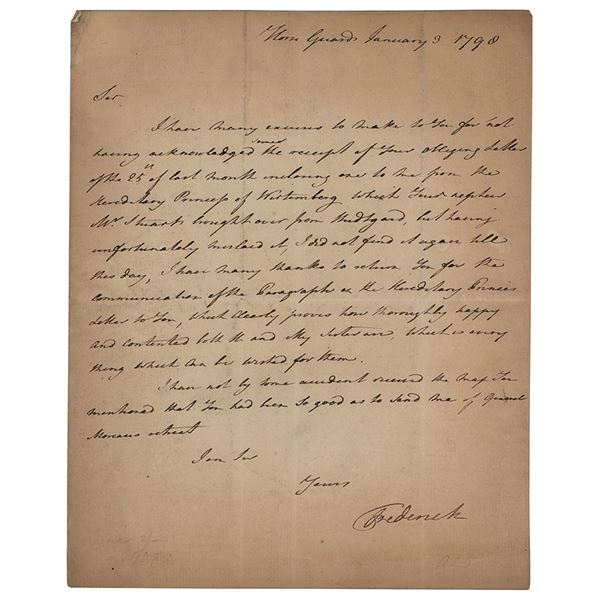 Horse Guards January 3 1798
Sir
I have many excuses to make to You for not
sooner
having acknowledged the receipt of Your obliging Letter
of the 25th of last month inclosing one to me from the
Hereditary Princess of Wirtemberg which Your nephew
Mr. Stuart brought over from Studtgard, but having
unfortunately mislaid it I did not find it again till
this day, I have many thanks to return You for the
communication of the Paragraph in the Hereditary Princes
Letter to You, which clearly proves how thoroughly happy
and contented both He and My Sister are, which is every
thing which can be wished for them.
I have not by some accident received the map You
mentioned that You had been so good as to send me of General
Moreaus retreat
I am Sir
Yours
Frederick